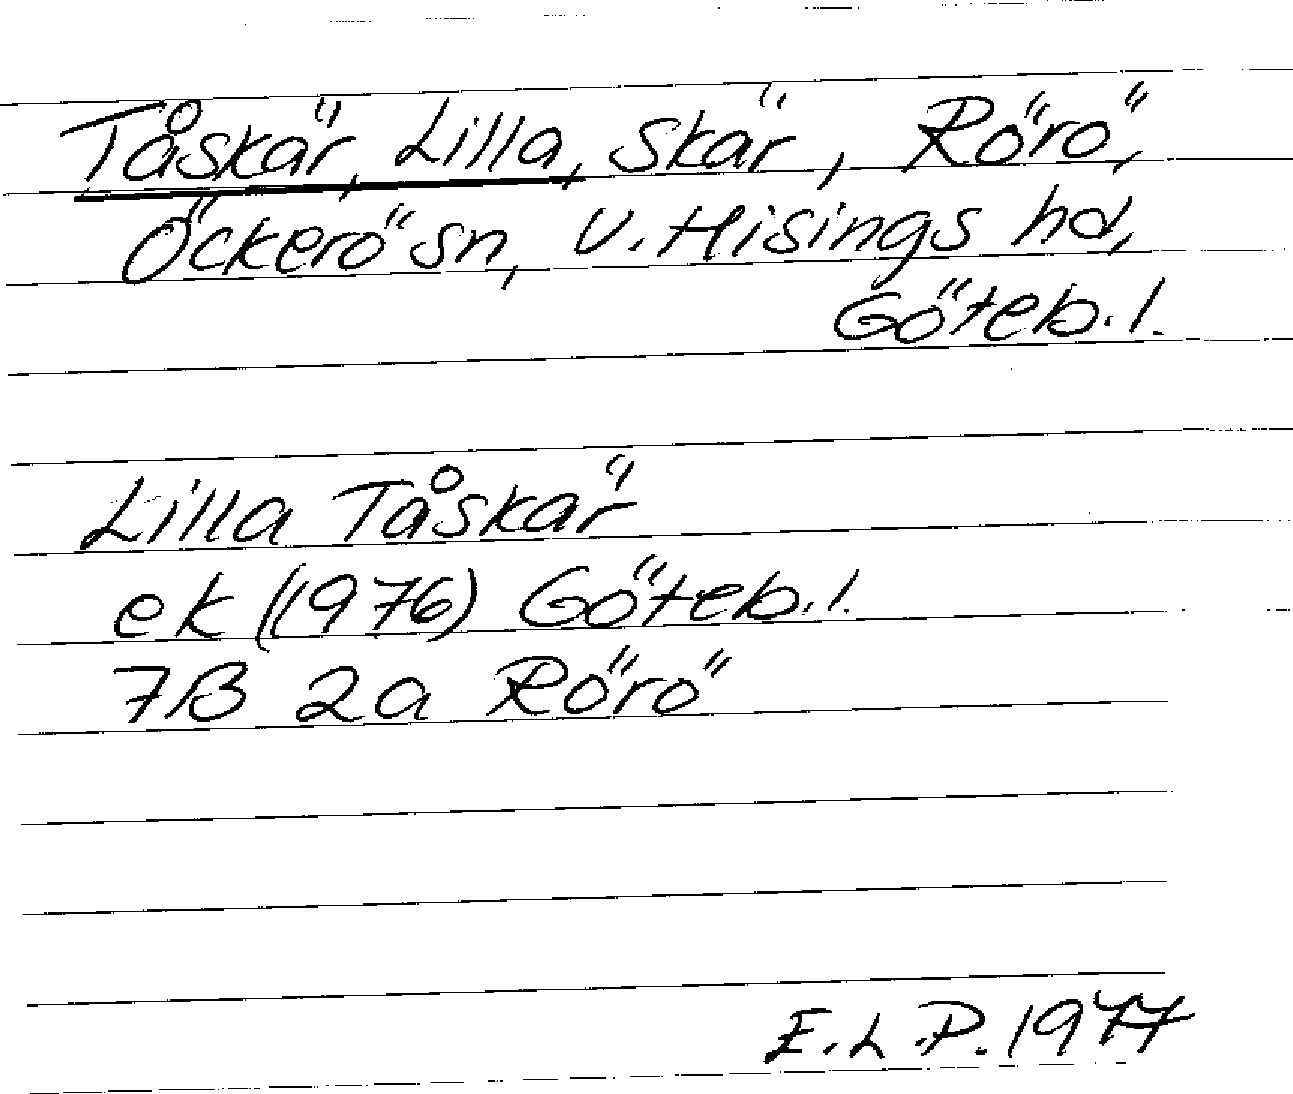 Tåskär, Lilla, skär, Rörö,
Öckerö sn, V. Hisings hd,
Göteb. l.
Lilla Tåskär
ek (1976) Göteb. l.
7B 2a Rörö
E.L.P. 1977